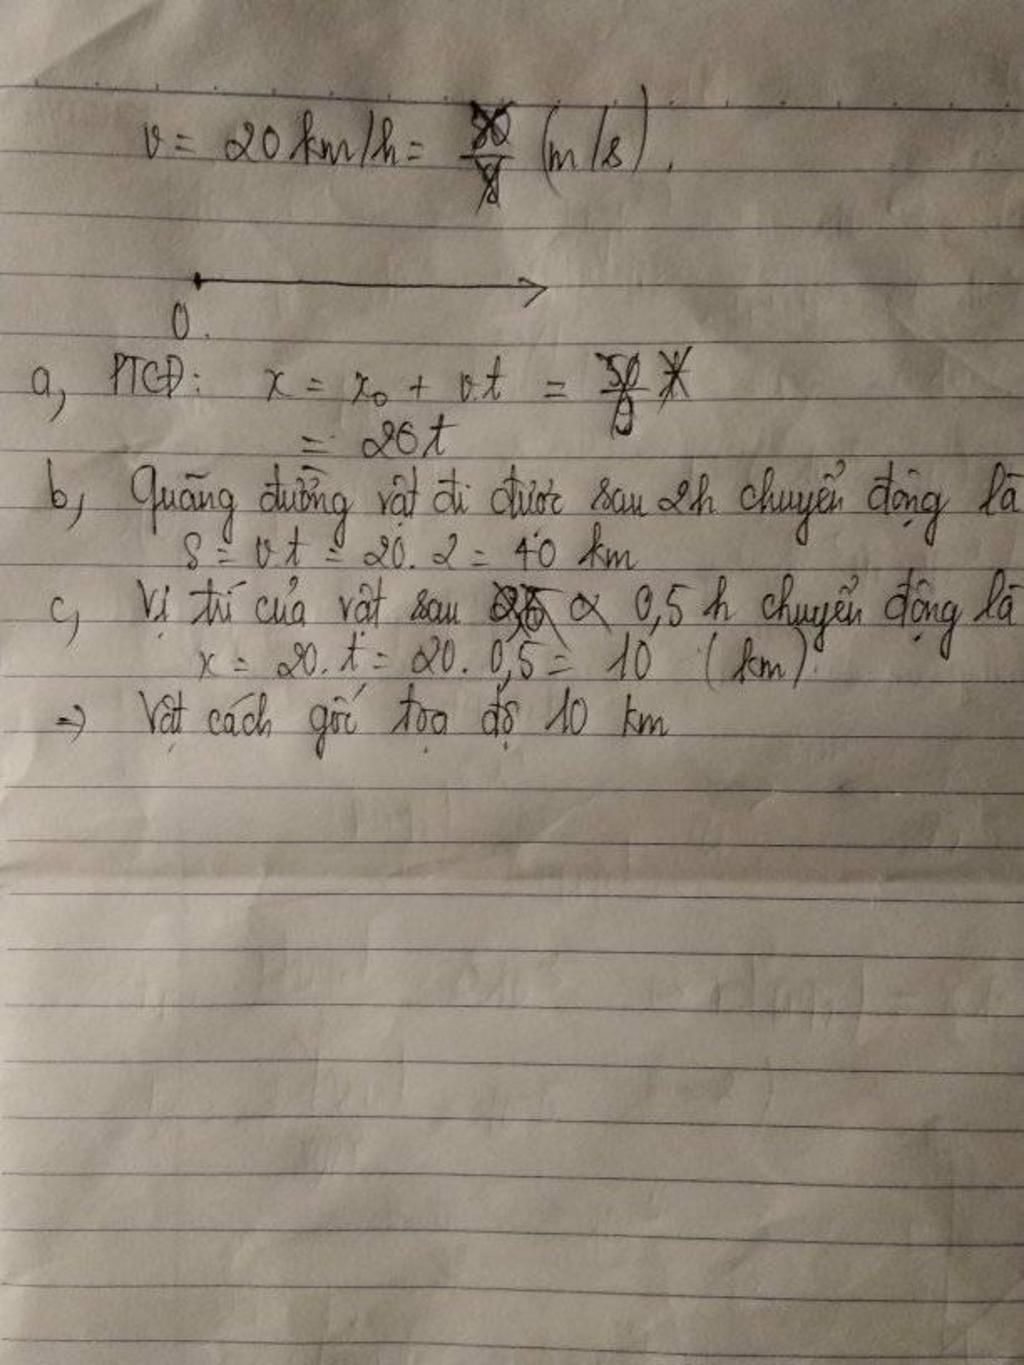 v = 20 km/h = 50/9 (m/s).
O.
a, PTCĐ: x = x₀ + v.t = 50/9 t
= 20t
b, Quãng đường vật đi được sau 2h chuyển động là
S = vt = 20. 2 = 40 km
c, Vị trí của vật sau 0,5 h chuyển động là
x = 20. t = 20. 0,5 = 10 (km).
=> Vật cách gốc tọa độ 10 km